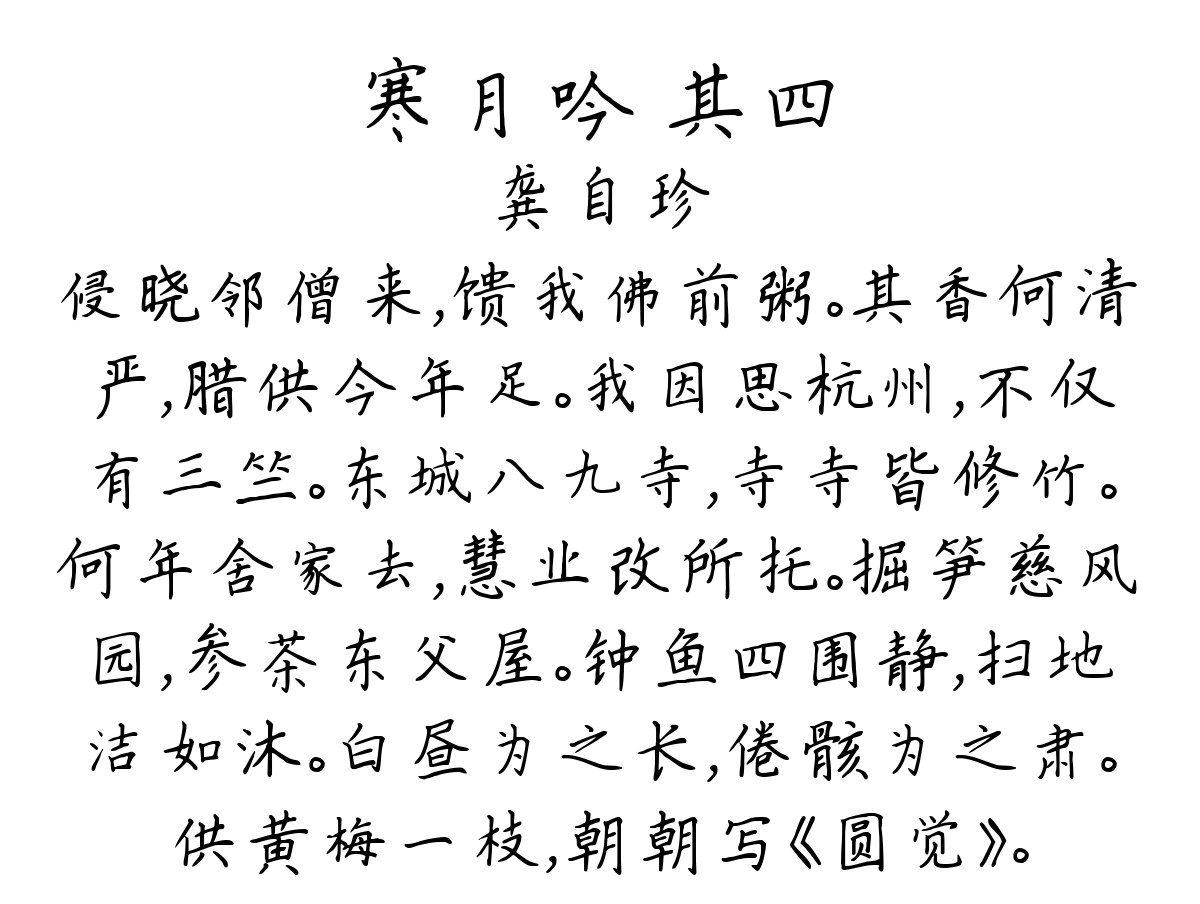 寒月吟 其四
龚自珍
侵晓邻僧来,馈我佛前粥。其香何清
严,腊供今年足。我因思杭州,不仅
有三竺。东城八九寺,寺寺皆修竹。
何年舍家去,慧业改所托。掘笋慈风
园,参茶东父屋。钟鱼四围静,扫地
洁如沐。白昼为之长,倦骸为之肃。
供黄梅一枝,朝朝写《圆觉》。